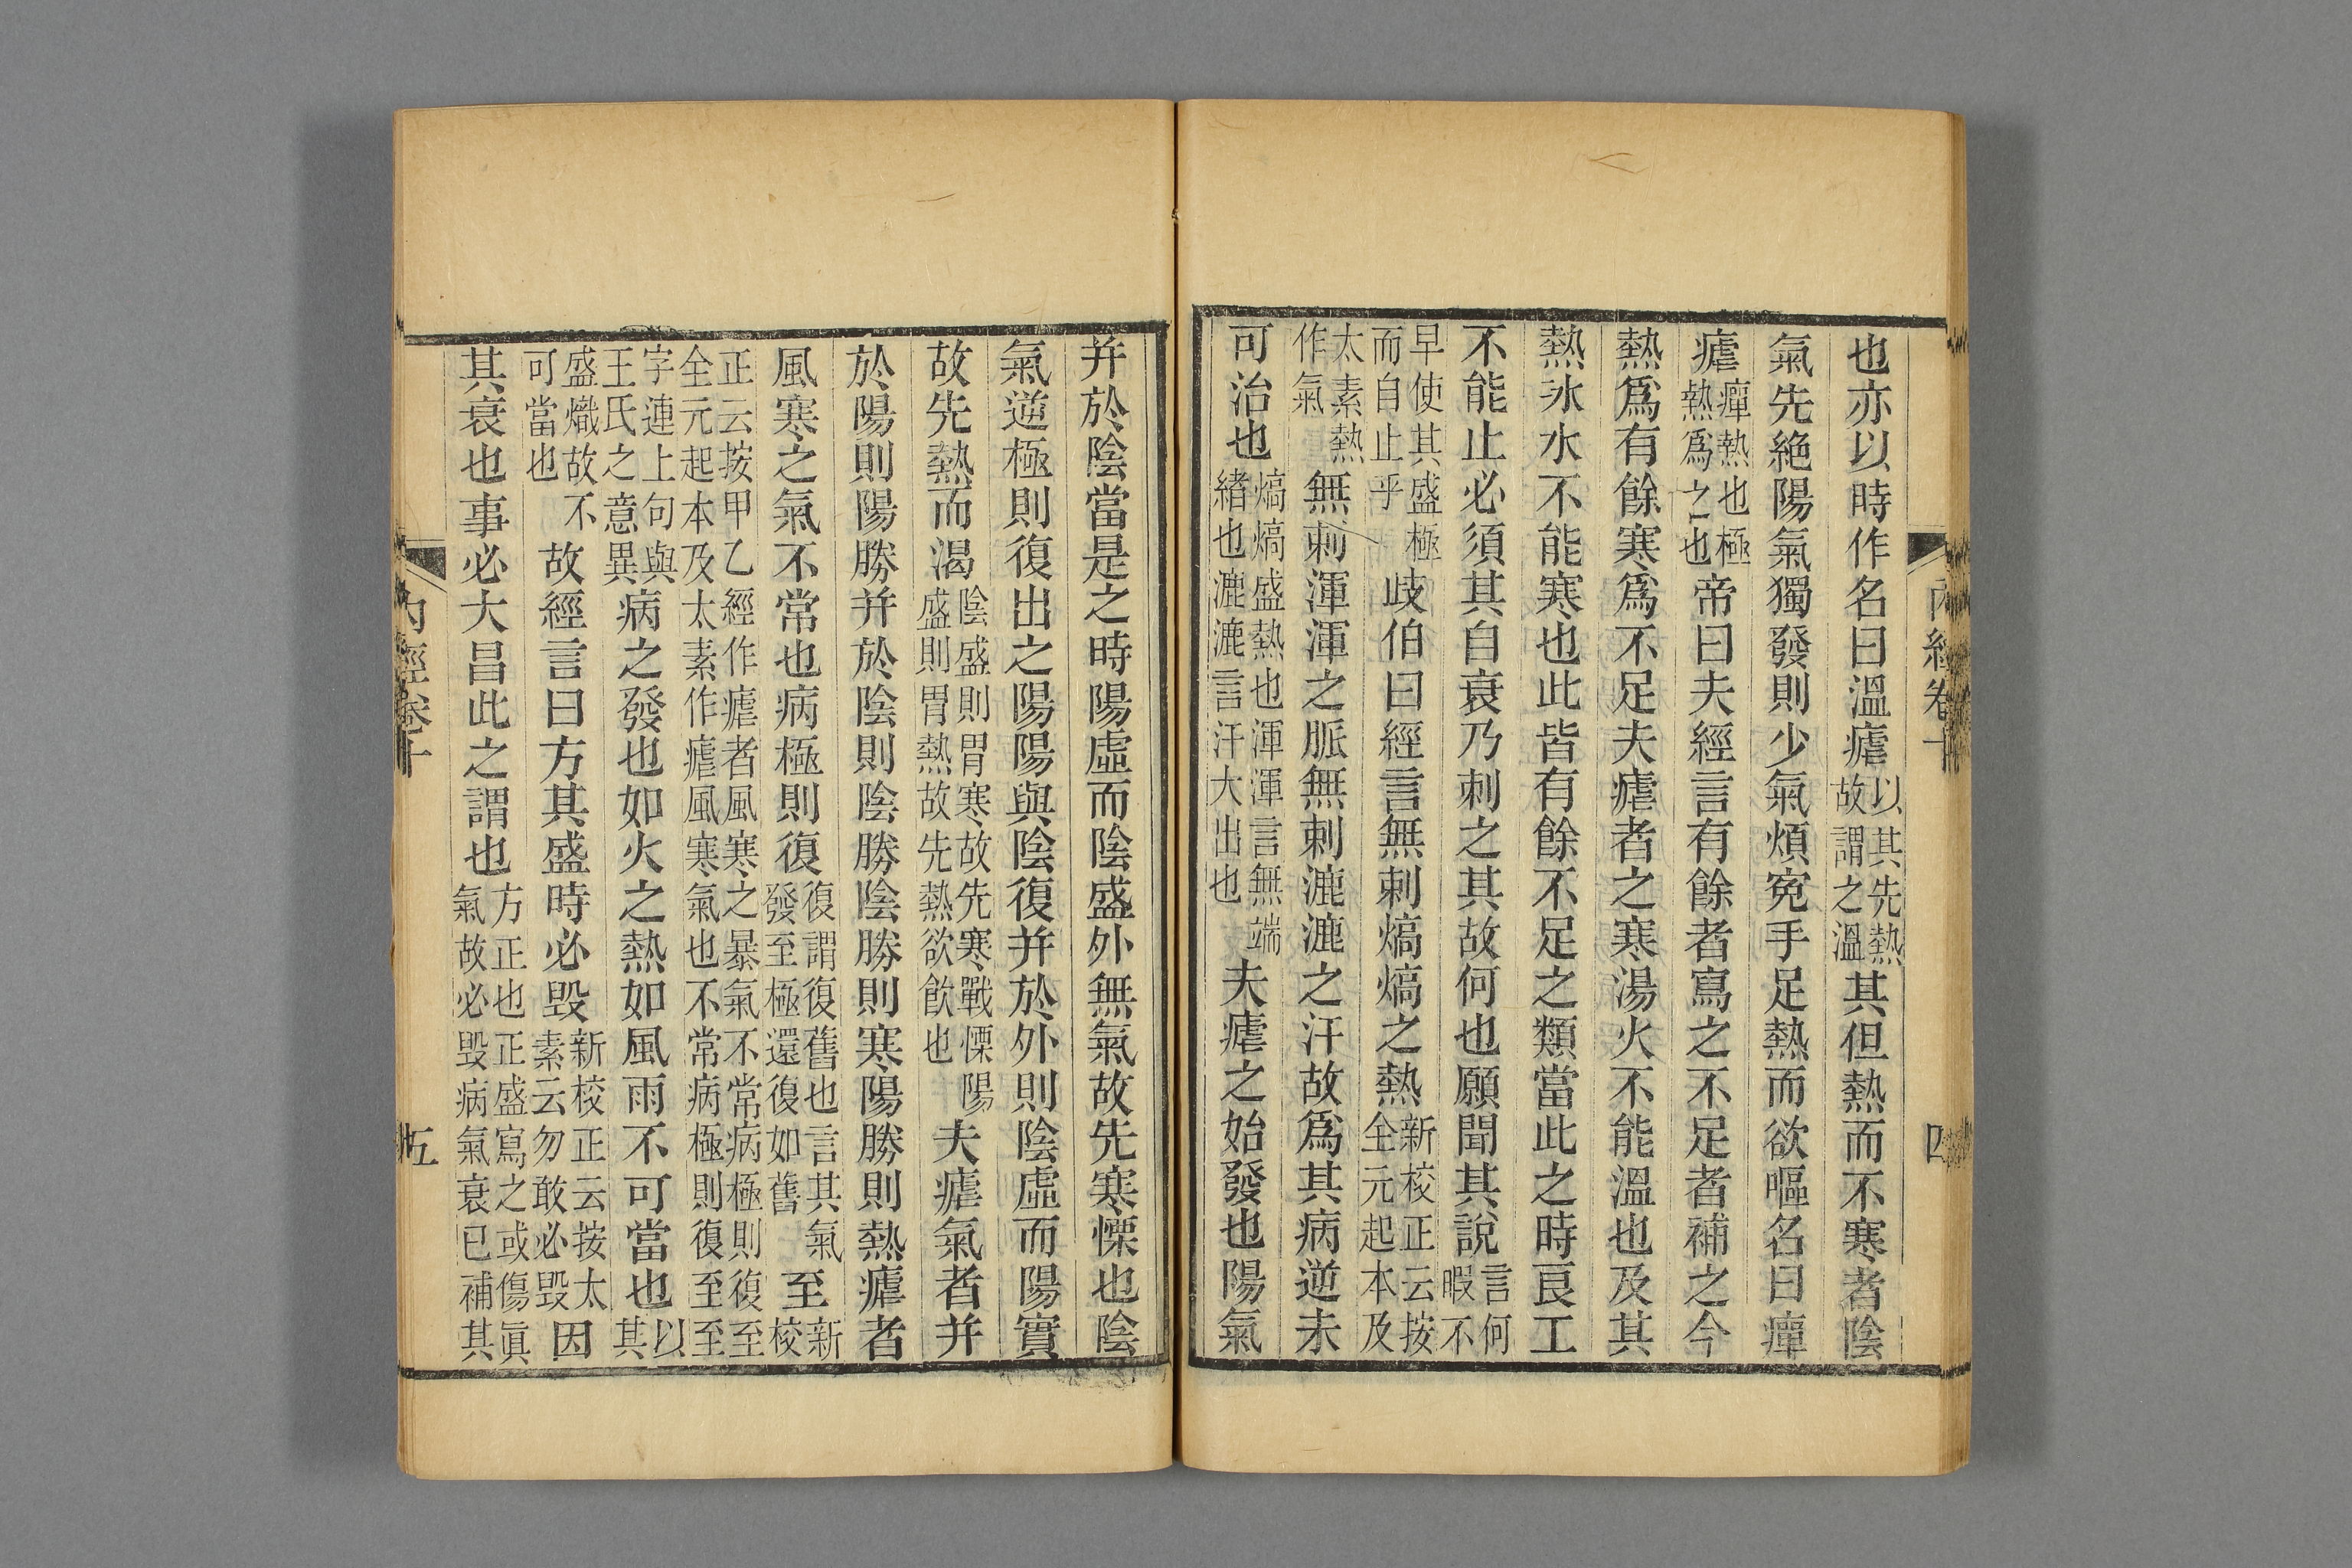 內經卷十　四
也亦以時作名曰溫瘧以其先熱故謂之溫其但熱而不寒者陰
氣先絶陽氣獨發則少氣煩寃手足熱而欲嘔名曰癉
瘧癉熱也極熱爲之也帝曰夫經言有餘者寫之不足者補之今
熱爲有餘寒爲不足夫瘧者之寒湯火不能溫也及其
熱氷水不能寒也此皆有餘不足之類當此之時良工
不能止必須其自衰乃刺之其故何也願聞其說言何暇不
早使其盛極而自止乎歧伯曰經言無刺熇熇之熱新校正云按全元起本及
太素熱作氣無刺渾渾之脈無刺漉漉之汗故爲其病逆未
可治也熇熇盛熱也渾渾言無端緒也漉漉言汗大出也夫瘧之始發也陽氣
并於陰當是之時陽虛而陰盛外無氣故先寒慄也陰
氣逆極則復出之陽陽與陰復并於外則陰虛而陽實
故先熱而渴陰盛則胃寒故先寒戰慄陽盛則胃熱故先熱欲飲也夫瘧氣者并
於陽則陽勝并於陰則陰勝陰勝則寒陽勝則熱瘧者
風寒之氣不常也病極則復復謂復舊也言其氣發至極還復如舊至新校
正云按甲乙經作瘧者風寒之暴氣不常病極則復至全元起本及太素作瘧風寒氣也不常病極則復至至
字連上句與王氏之意異病之發也如火之熱如風雨不可當也以其
盛熾故不可當也故經言曰方其盛時必毀新校正云按太素云勿敢必毀因
其衰也事必大昌此之謂也方正也正盛寫之或傷眞氣故必毀病氣衰已補其
內經卷十　五